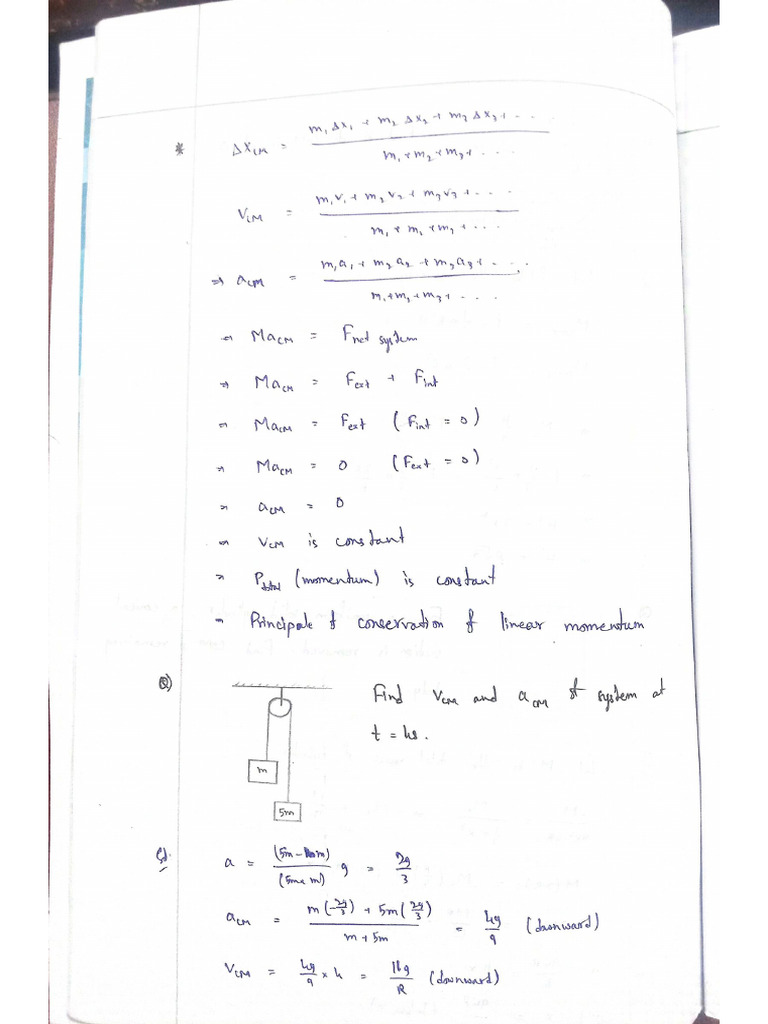 * Δx_CM = (m₁Δx₁ + m₂Δx₂ + m₃Δx₃ + ...) / (m₁ + m₂ + m₃ + ...)
V_CM = (m₁v₁ + m₂v₂ + m₃v₃ + ...) / (m₁ + m₂ + m₃ + ...)
⇒ a_CM = (m₁a₁ + m₂a₂ + m₃a₃ + ...) / (m₁ + m₂ + m₃ + ...)
⇒ Ma_CM = F_net system
⇒ Ma_CM = F_ext + F_int
⇒ Ma_CM = F_ext (F_int = 0)
⇒ Ma_CM = 0 (F_ext = 0)
⇒ a_CM = 0
⇒ V_CM is constant
⇒ P_total (momentum) is constant
⇒ Principale of conservation of linear momentum
Q) Find V_CM and a_CM of system at
t = 4s.
m
5m
Sol. a = (5m - m) / (5m + m) g = 2g/3
a_CM = (m(-2g/3) + 5m(2g/3)) / (m + 5m) = 4g/9 (downward)
V_CM = 4g/9 × 4 = 16g/9 (downward)